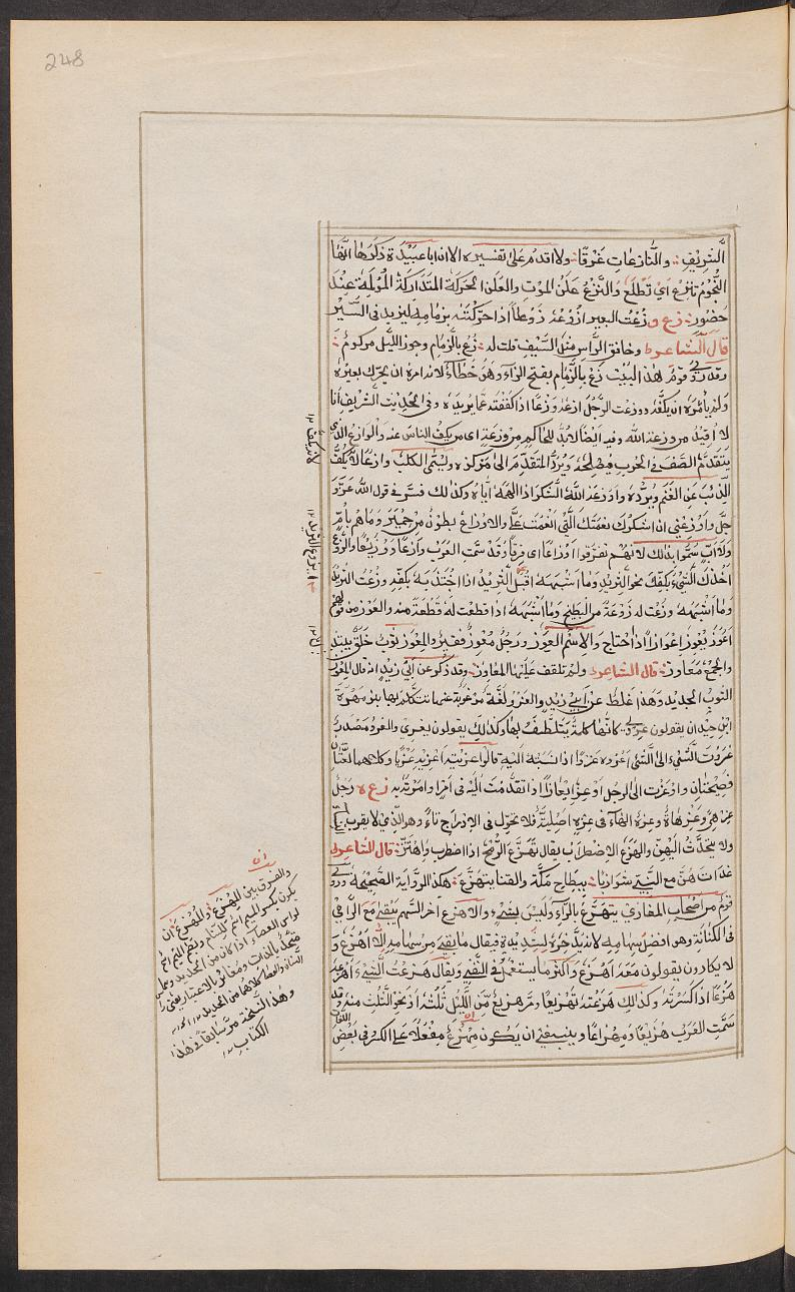 248
الشريف والنازعات غرقًا ولا اقدم على تفسيره الا ان ابا عبيدة ذكر انها
النجوم تنزع اي تطلع والنزع علز الموت والعلز الحركة المتداركة المؤلمة عند
حضور زع و وزعت البعير ازوعه زوعًا اذا حركته بزمامه ليزيد في السير
قال الشاعر وخافق الراس مثل السيف قلت له زع بالزمام وجوز الليل مركوم
وقد روى قوم هذا البيت زع بالزمام بفتح الزاء وهو خطاء لانه امره ان يحرك بعيره
ولم يأمره ان يكفه ووزعت الرجل ازعه وزعًا اذا كففته عما يريده وفي الحديث الشريف انا
لا اقيد من وزعة الله وفيه ايضا لا بد للحاكم من وزعة اي من يكف الناس عنه والوازع الذي
يتقدم الصف في الحرب فيصلحه ويرد المتقدم الى مركزه ويسمى الكلب وازعًا لانه يكف
الذئب عن الغنم ويرده واوزعه الله الشكر اذا الهمه اياه وكذلك فسر في قول الله عز و
جل واوزعني ان اشكر نعمتك التي انعمت علي والاوزاع بطون من حمير وما هم بأم
ولا اب سموا بذلك لانهم تفرقوا اوزاعًا اي فرقًا وقد سمت العرب وازعًا ووزيعًا والزوع
اخذك الشيء بكفك نحو الثريد وما اشبهه اقبل يزوع الثريد اذا اجتذبه بكفه وزعت الثريد
وما اشبهه وزعت له زوعة من البطيخ وما اشبهه اذا قطعت له قطعة منه والعوز من قولهم
اعوز يعوز اعوازًا اذا احتاج والاسم العوز ورجل معوز فقير والمعوز ثوب خلق يبتذل
والجمع معاوز قال الشاعر ولم تلقف عليها المعاوز وقد ذكر عن ابي زيد انه قال المعوز
الثوب الجديد وهذا غلط عن ابي زيد والعزو لغة مرغوب عنها تتكلم بها بنو مهرة
ابن حيدان يقولون عزوى كانها كلمة يتلطف بها وكذلك يقولون يعزى والعزو مصدر
عزوت الشيء الى الشيء اعزوه عزوًا اذا نسبته اليه قالوا عزيته اعزيه عزيًا وكلاهما لغتان
فصيحتان واوعزت الى الرجل اوعز ايعازًا اذا تقدمت اليه في امر او امرته به زع ه رجل
عزهى وعزهاة وعزه الهاء في عزه اصلية فلا تحول في الادراج تاء وهو الذي لا يقرب النساء
ولا يتحدث اليهن والهزع الاضطراب يقال تهزع الرمح اذا اضطرب واهتز قال الشاعر
غداة هن مع النبي شوازبًا ببطاح مكة والقنا يتهزع هكذا الرواية الصحيحة وروى
قوم من اصحاب المغازي يتهرع بالراء وليس بشيء والاهزع آخر السهم يبقى مع الرامي
في الكنانة وهو افضل سهامه لانه يذخره لشديدة فيقال ما بقي من سهامه الا اهزع و
لا يكادون يقولون معه اهزع واكثر ما يستعمل في النفي ويقال هزعت الشيء اهزعه
هزعًا اذا كسرته وكذلك هزعته تهزيعًا ومر هزيع من الليل ثلثه او نحو الثلث منه وقد
سمت العرب هزيعًا ومهزاعًا وينبغي ان يكون مهزع مفعله على الكسر في بعض
اللغات
والفرق بين المهزع والمهزع ان
يكون بكسر الميم
وهذا النسخة مر سابقًا في هذا
الكتاب